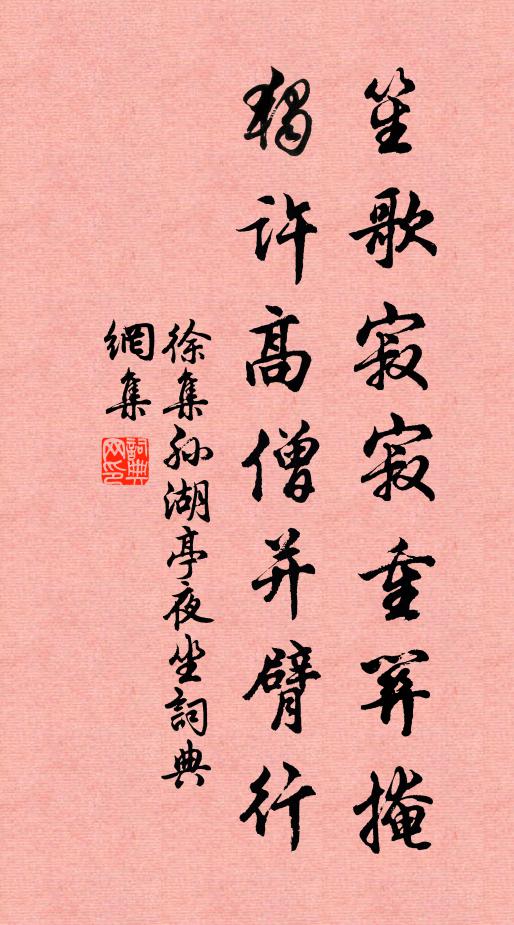 笙歌寂寂重關掩
獨許高僧并臂行
徐集孫湖亭夜坐詞典
網集
詞典网印